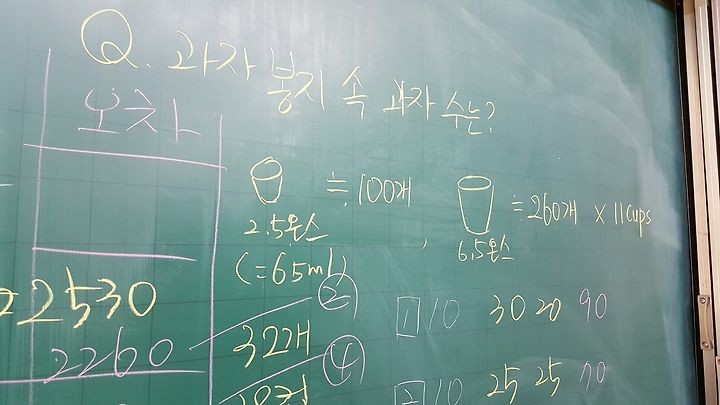 Q. 과자 봉지 속 과자 수는?
오차
≒ 100개
2.5온스
(=65ml)
≒ 260개 × 11cups
6.5온스
2530
2260
②
32개
④
1 10 30 20 90
2 10 25 25 70